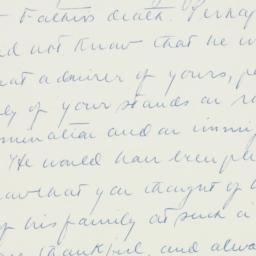 Fathers death. Perhap
d not know that he w
at admirer of yours, pe
ly of your stands on
mination and on immig
He would have been pl
now that you thought of h
of his family at such a
thankful, and alwa